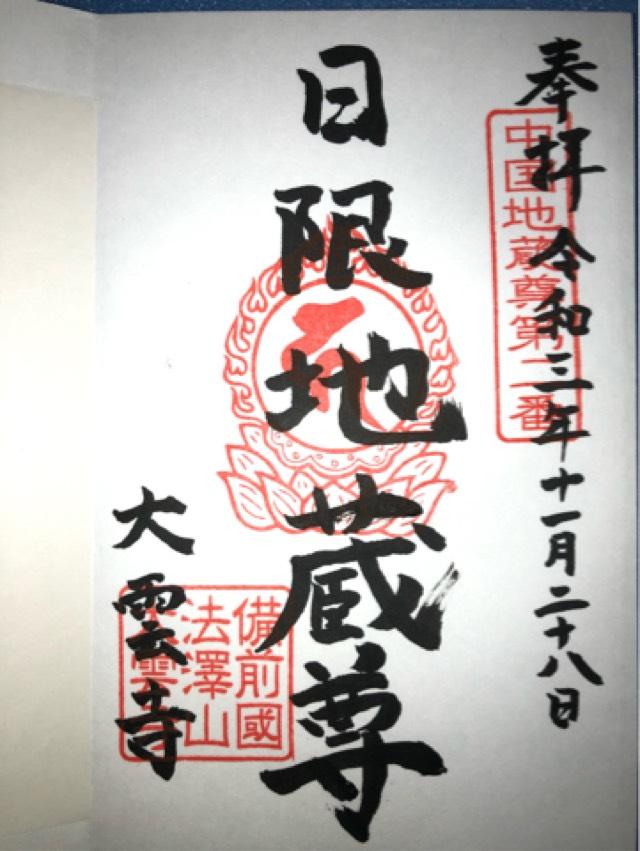 奉拝 令和三年十一月二十八日
中国地蔵尊第二番
日限地蔵尊
大雲寺
備前國
法澤山
大雲寺